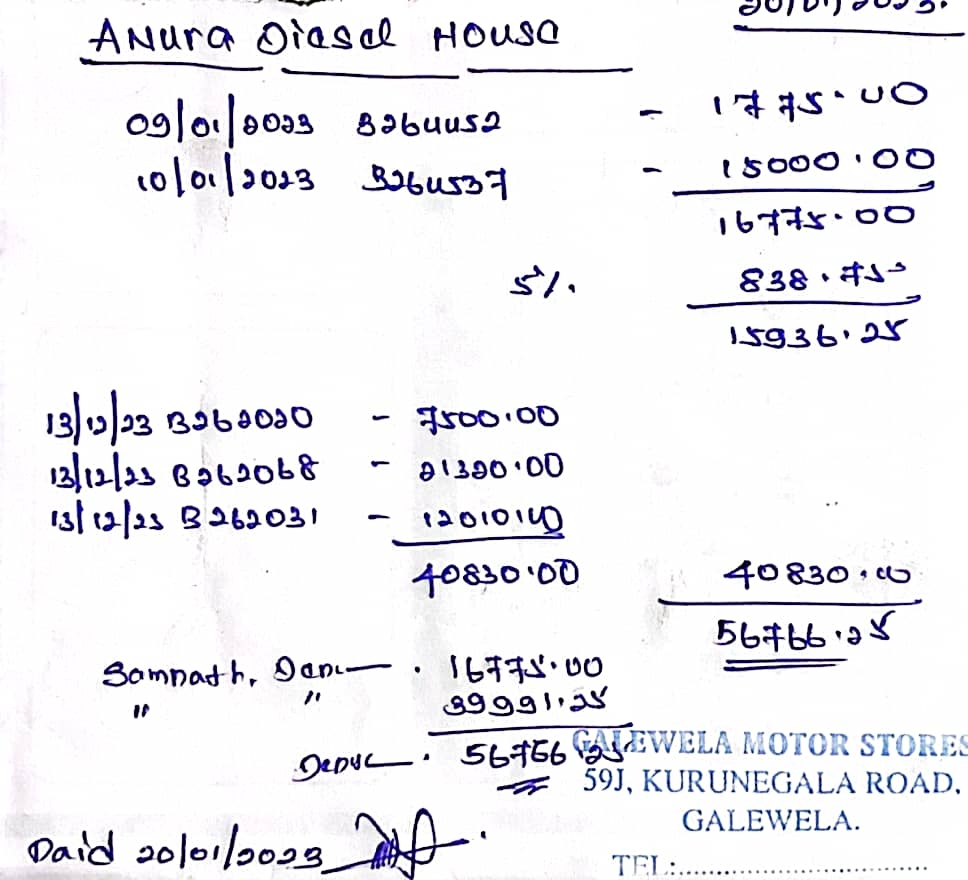 20/01/2023.
Anura Diesel House
09/01/2023 B264452 - 1775.00
10/01/2023 B264537 - 15000.00
16775.00
5%. 838.75
15936.25
13/12/23 B262020 - 7500.00
13/12/23 B262068 - 21320.00
13/12/23 B262031 - 12010.00
40830.00 40830.00
56766.25
Sampath, . 16775.00
" " 39991.25
. 56766.25
GALEWELA MOTOR STORES
59J, KURUNEGALA ROAD,
GALEWELA.
Paid 20/01/2023
TEL: